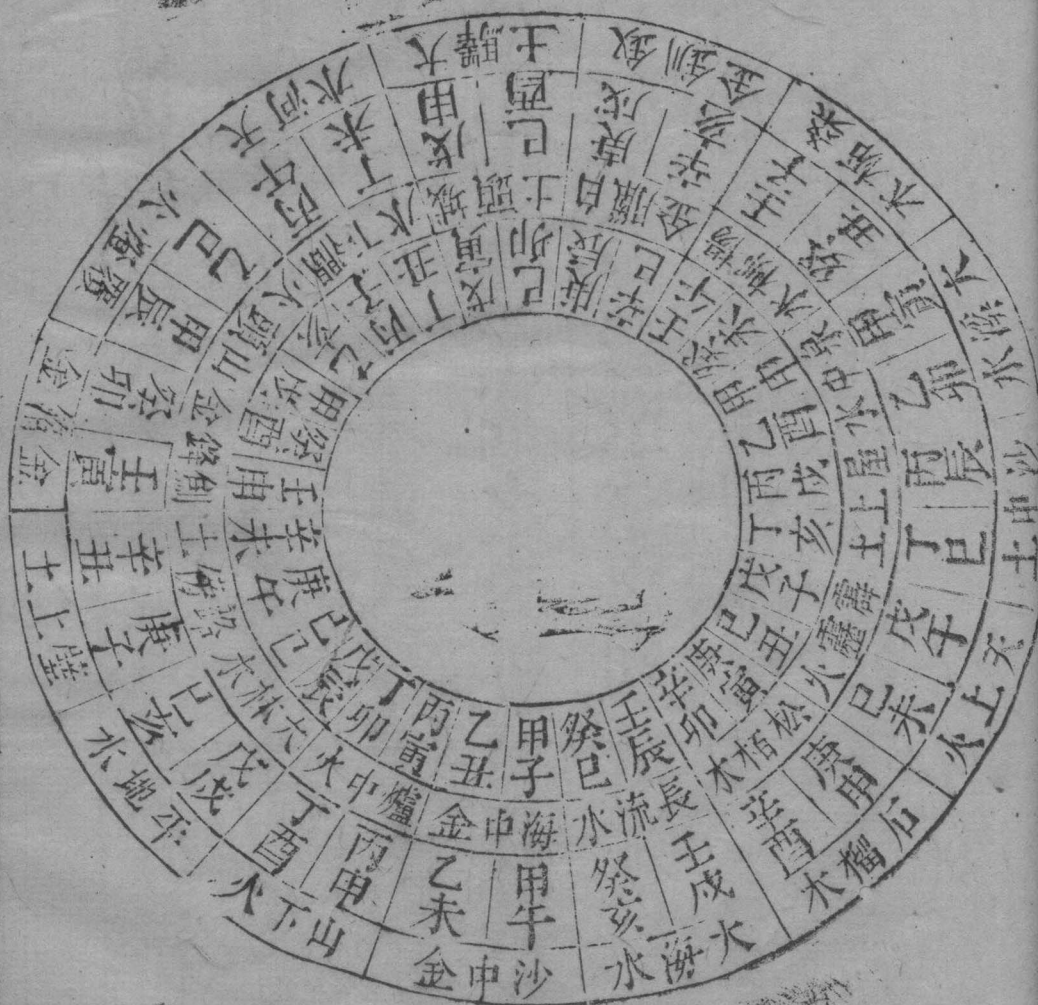 甲子
乙丑
海中金
丙寅
丁卯
爐中火
戊辰
己巳
大林木
庚午
辛未
路傍土
壬申
癸酉
劍鋒金
甲戌
乙亥
山頭火
丙子
丁丑
澗下水
戊寅
己卯
城頭土
庚辰
辛巳
白臘金
壬午
癸未
楊柳木
甲申
乙酉
泉中水
丙戌
丁亥
屋上土
戊子
己丑
霹靂火
庚寅
辛卯
松栢木
壬辰
癸巳
長流水
甲午
乙未
沙中金
丙申
丁酉
山下火
戊戌
己亥
平地木
庚子
辛丑
壁上土
壬寅
癸卯
金箔金
甲辰
乙巳
覆燈火
丙午
丁未
天河水
戊申
己酉
大驛土
庚戌
辛亥
釵釧金
壬子
癸丑
桑柘木
甲寅
乙卯
大溪水
丙辰
丁巳
沙中土
戊午
己未
天上火
庚申
辛酉
石榴木
壬戌
癸亥
大海水